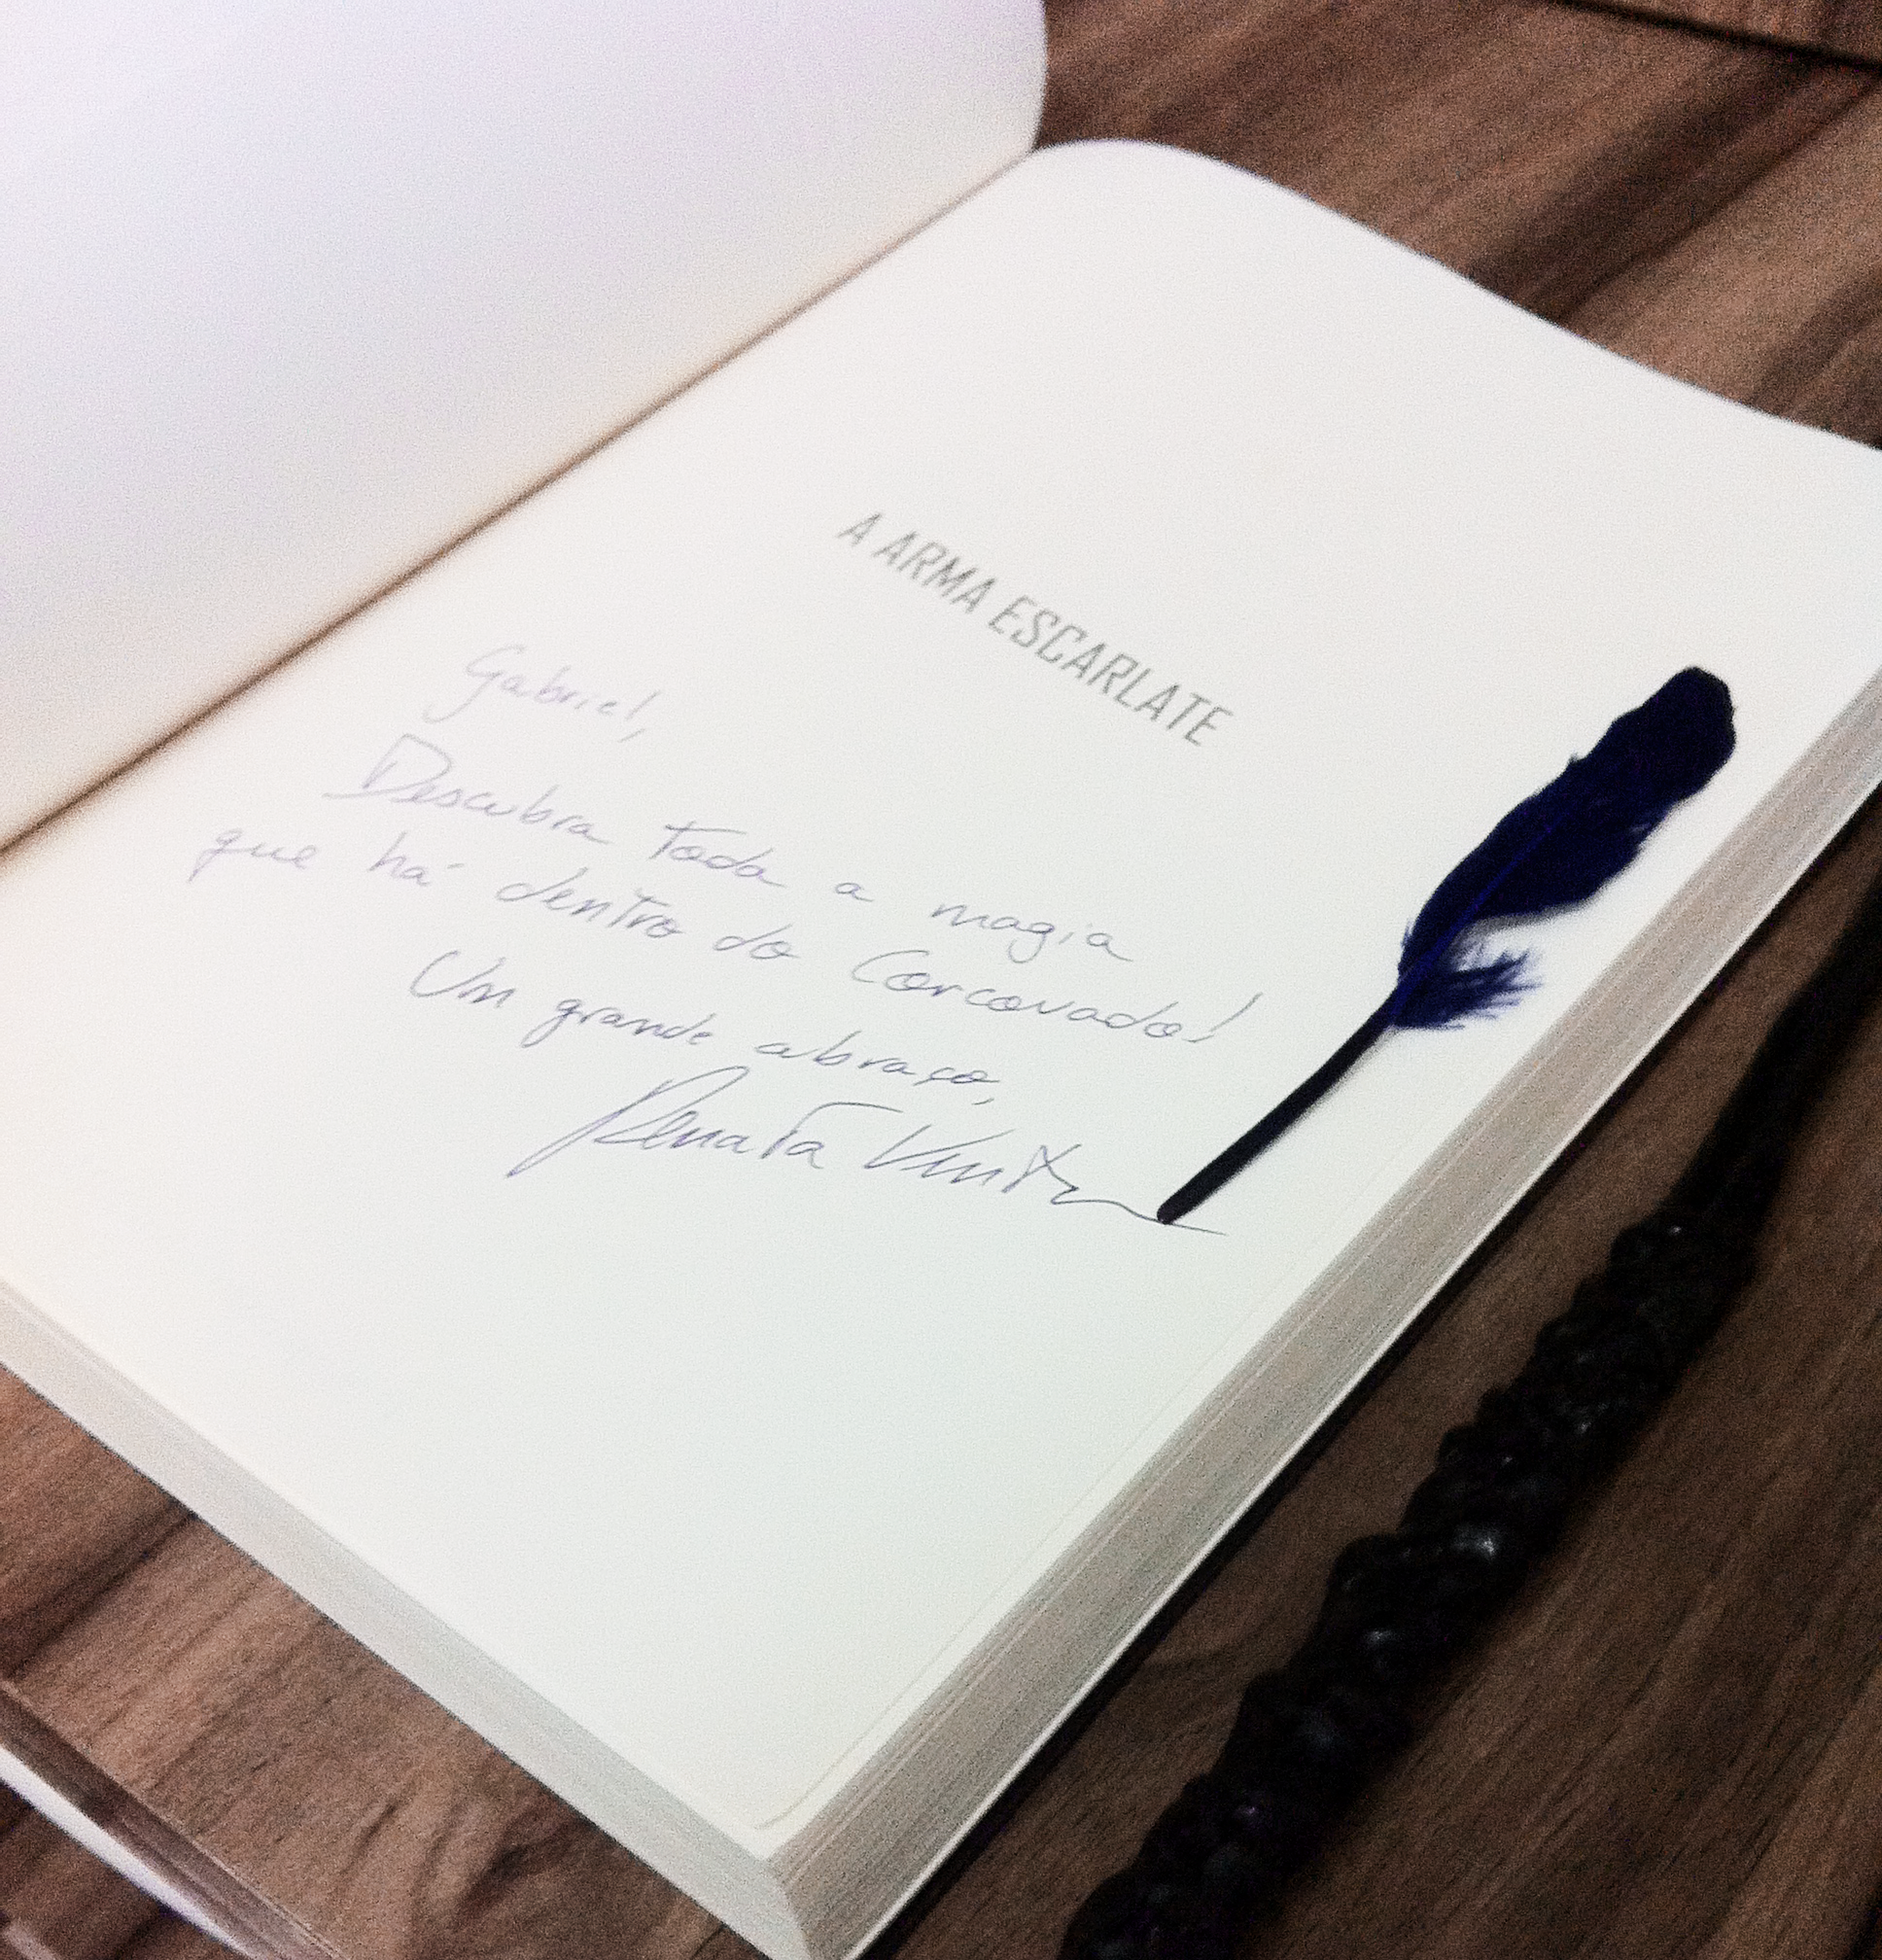 A ARMA ESCARLATE
Gabriel,
Descubra toda a magia
que há dentro do Corcovado!
Um grande abraço,
Renata Ventura